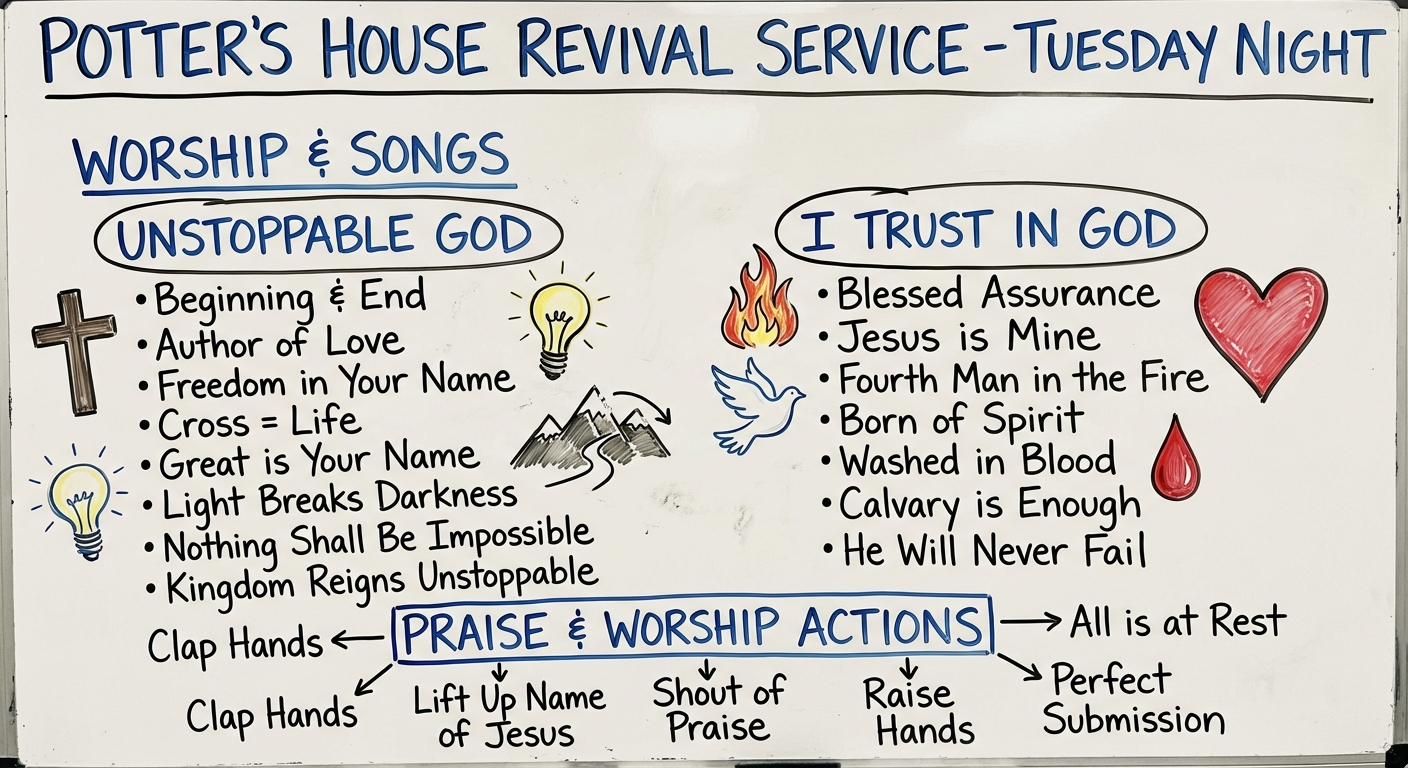 POTTER'S HOUSE REVIVAL SERVICE - TUESDAY NIGHT
WORSHIP & SONGS
UNSTOPPABLE GOD
• Beginning & End
• Author of Love
• Freedom in Your Name
• Cross = Life
• Great is Your Name
• Light Breaks Darkness
• Nothing Shall Be Impossible
• Kingdom Reigns Unstoppable
I TRUST IN GOD
• Blessed Assurance
• Jesus is Mine
• Fourth Man in the Fire
• Born of Spirit
• Washed in Blood
• Calvary is Enough
• He Will Never Fail
PRAISE & WORSHIP ACTIONS
Clap Hands
Clap Hands
Lift Up Name
of Jesus
Shout of
Praise
Raise
Hands
Perfect
Submission
All is at Rest